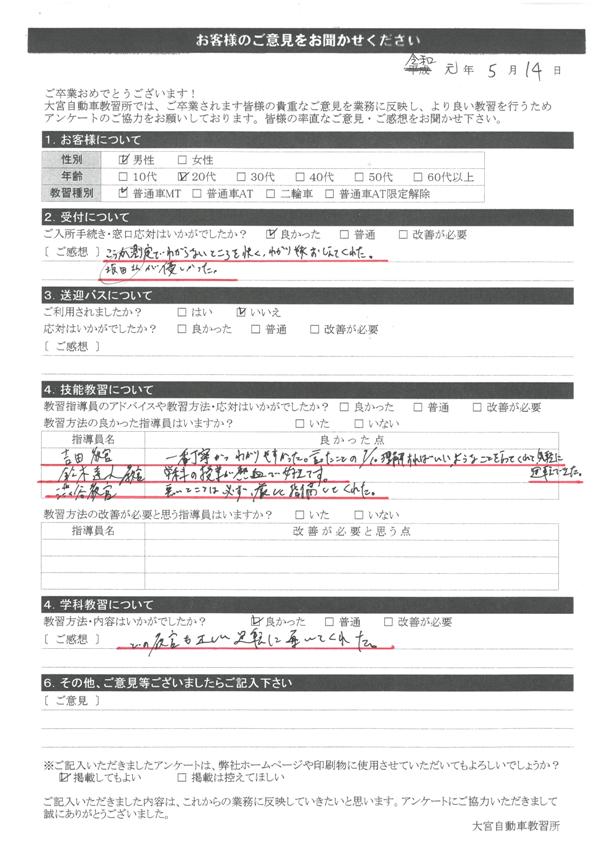 お客様のご意見をお聞かせください
令和
平成 元 年 5 月 14 日
ご卒業おめでとうございます！
大宮自動車教習所では、ご卒業されます皆様の貴重なご意見を業務に反映し、より良い教習を行うため
アンケートのご協力をお願いしております。皆様の率直なご意見・ご感想をお聞かせ下さい。
1. お客様について
性別 ☑ 男性 □ 女性
年齢 □ 10代 ☑ 20代 □ 30代 □ 40代 □ 50代 □ 60代以上
教習種別 ☑ 普通車MT □ 普通車AT □ 二輪車 □ 普通車AT限定解除
2. 受付について
ご入所手続き・窓口応対はいかがでしたか？ ☑ 良かった □ 普通 □ 改善が必要
［ ご感想 ］ わからないところを快く、わかり
優しかった。
3. 送迎バスについて
ご利用されましたか？ □ はい ☑ いいえ
応対はいかがでしたか？ □ 良かった □ 普通 □ 改善が必要
［ ご感想 ］
4. 技能教習について
教習指導員のアドバイスや教習方法・応対はいかがでしたか？ □ 良かった □ 普通 □ 改善が必要
教習方法の良かった指導員はいますか？ □ いた □ いない
指導員名 良かった点
吉田教官 一番丁寧かつわかりやすかった。言ったことの 1/10 理解すればいいよ
運転できた。
鈴木達人教官 学科の授業が熱血で好きです。
渋谷教官 悪いところは必ず、厳しく指摘してくれた。
教習方法の改善が必要と思う指導員はいますか？ □ いた □ いない
指導員名 改善が必要と思う点
4. 学科教習について
教習方法・内容はいかがでしたか？ ☑ 良かった □ 普通 □ 改善が必要
［ ご感想 ］ どの教官も正しい運転に導いてくれた。
6. その他、ご意見等ございましたらご記入下さい
［ ご意見 ］
※ご記入いただきましたアンケートは、弊社ホームページや印刷物に使用させていただいてもよろしいでしょうか？
☑ 掲載してもよい □ 掲載は控えてほしい
ご記入いただきました内容は、これからの業務に反映していきたいと思います。アンケートにご協力いただきまして
誠にありがとうございました。
大宮自動車教習所